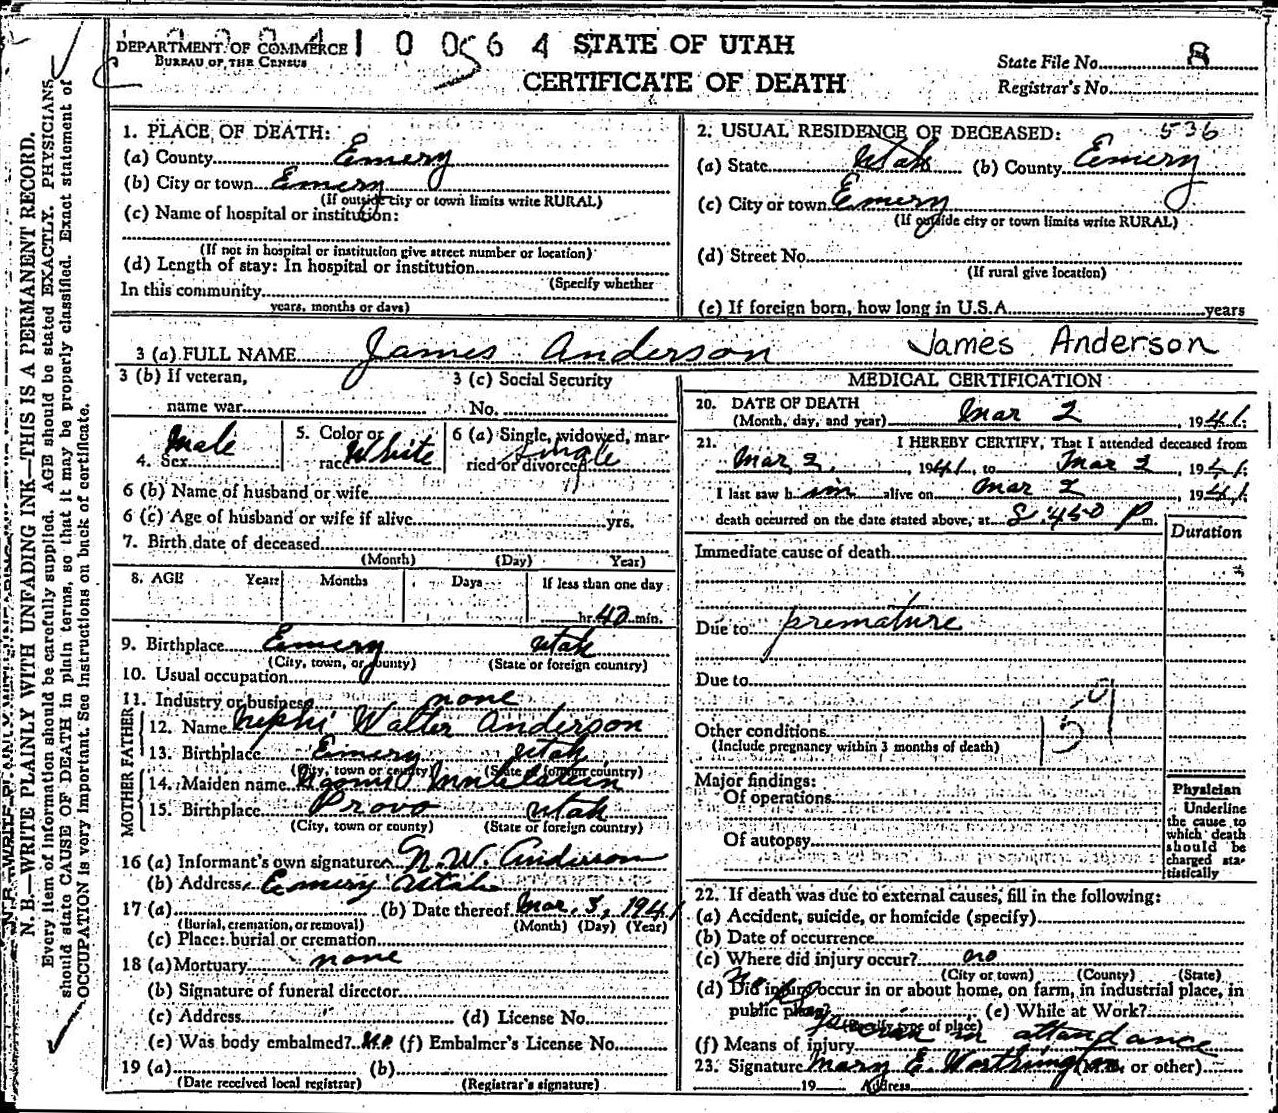 DEPARTMENT OF COMMERCE
BUREAU OF THE CENSUS
1 0 0 5 6 4
STATE OF UTAH
CERTIFICATE OF DEATH
State File No. 8
Registrar's No.
N. B.—WRITE PLAINLY WITH UNFADING INK—THIS IS A PERMANENT RECORD.
Every item of information should be carefully supplied. AGE should be stated EXACTLY. PHYSICIANS
should state CAUSE OF DEATH in plain terms, so that it may be properly classified. Exact statement of
OCCUPATION is very important. See instructions on back of certificate.
1. PLACE OF DEATH:
(a) County Emery
(b) City or town Emery
(If outside city or town limits write RURAL)
(c) Name of hospital or institution:
(If not in hospital or institution give street number or location)
(d) Length of stay: In hospital or institution
(Specify whether
In this community
years, months or days)
2. USUAL RESIDENCE OF DECEASED: 536
(a) State Utah (b) County Emery
(c) City or town Emery
(If outside city or town limits write RURAL)
(d) Street No.
(If rural give location)
(e) If foreign born, how long in U.S.A. years
3 (a) FULL NAME James Anderson James Anderson
3 (b) If veteran, 3 (c) Social Security
name war No.
4. Sex Male 5. Color or race White 6 (a) Single, widowed, married or divorced Single
6 (b) Name of husband or wife
6 (c) Age of husband or wife if alive yrs.
7. Birth date of deceased
(Month) (Day) Year)
8. AGE Years Months Days If less than one day
hr. 40 min.
9. Birthplace Emery Utah
(City, town, or county) (State or foreign country)
10. Usual occupation
11. Industry or business none
FATHER
12. Name Nephi Walter Anderson
13. Birthplace Emery Utah
(City, town or county) (State or foreign country)
MOTHER
14. Maiden name
15. Birthplace Provo Utah
(City, town or county) (State or foreign country)
16 (a) Informant's own signature N. W. Anderson
(b) Address Emery Utah
17 (a) (b) Date thereof Mar. 3, 1941
(Burial, cremation, or removal) (Month) (Day) (Year)
(c) Place: burial or cremation
18 (a) Mortuary none
(b) Signature of funeral director
(c) Address (d) License No.
(e) Was body embalmed? no (f) Embalmer's License No.
19 (a) (b)
(Date received local registrar) (Registrar's signature)
MEDICAL CERTIFICATION
20. DATE OF DEATH
(Month, day, and year) Mar 2, 1941
21. I HEREBY CERTIFY, That I attended deceased from
Mar 2, 1941, to Mar 2, 1941
I last saw him alive on Mar 2 1941
death occurred on the date stated above, at P m.
Duration
Immediate cause of death
Due to premature
Due to
159
Other conditions
(Include pregnancy within 3 months of death)
Major findings:
Of operations
Of autopsy
Physician
Underline
the cause to
which death
should be
charged sta-
tistically
22. If death was due to external causes, fill in the following:
(a) Accident, suicide, or homicide (specify)
(b) Date of occurrence
(c) Where did injury occur? no
(City or town) (County) (State)
(d) Did injury occur in or about home, on farm, in industrial place, in
public place? (e) While at Work?
(Specify type of place)
(f) Means of injury in attendance
23. Signature Mary E. Worthington (M.D. or other)
19 Address